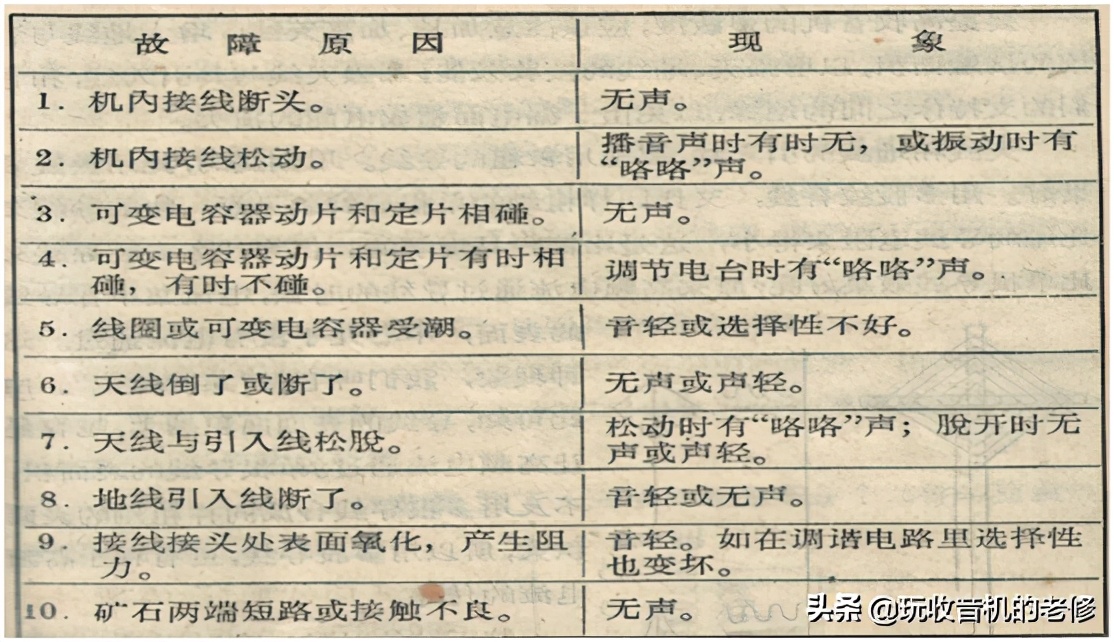 故障原因 现象
1. 机内接线断头。 无声。
2. 机内接线松动。 播音声时有时无，或振动时有
“咯咯”声。
3. 可变电容器动片和定片相碰。 无声。
4. 可变电容器动片和定片有时相
碰，有时不碰。 调节电台时有“咯咯”声。
5. 线圈或可变电容器受潮。 音轻或选择性不好。
6. 天线倒了或断了。 无声或声轻。
7. 天线与引入线松脱。 松动时有“咯咯”声；脱开时无
声或声轻。
8. 地线引入线断了。 音轻或无声。
9. 接线接头处表面氧化，产生阻
力。 音轻。如在调谐电路里选择性
也变坏。
10. 矿石两端短路或接触不良。 无声。
头条 @玩收音机的老修